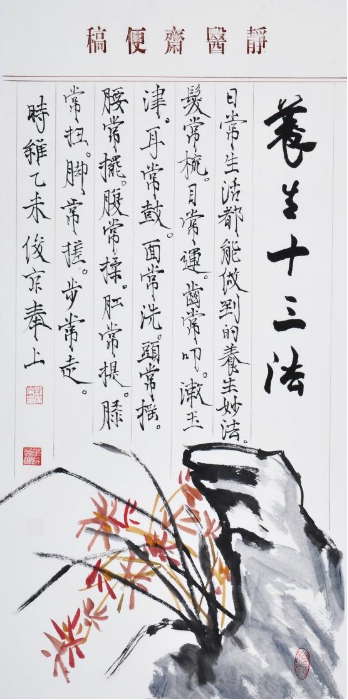 靜醫齋便稿
養生十三法
日常生活都能做到的養生妙法。
髮常梳。目常運。齒常叩。漱玉
津。耳常鼓。面常洗。頭常搖。
腰常擺。腹常揉。肛常提。膝
常扭。腳常搓。步常走。
時維乙未俊京奉上